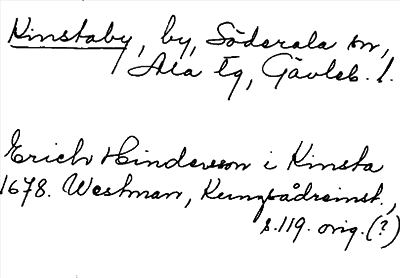 Kinstaby, by, Söderala sn,
Ala tg, Gävleb. l.
Erich Hindersson i Kinsta
1678. Westman, Kungsådreinst.,
s. 119. orig. (?)